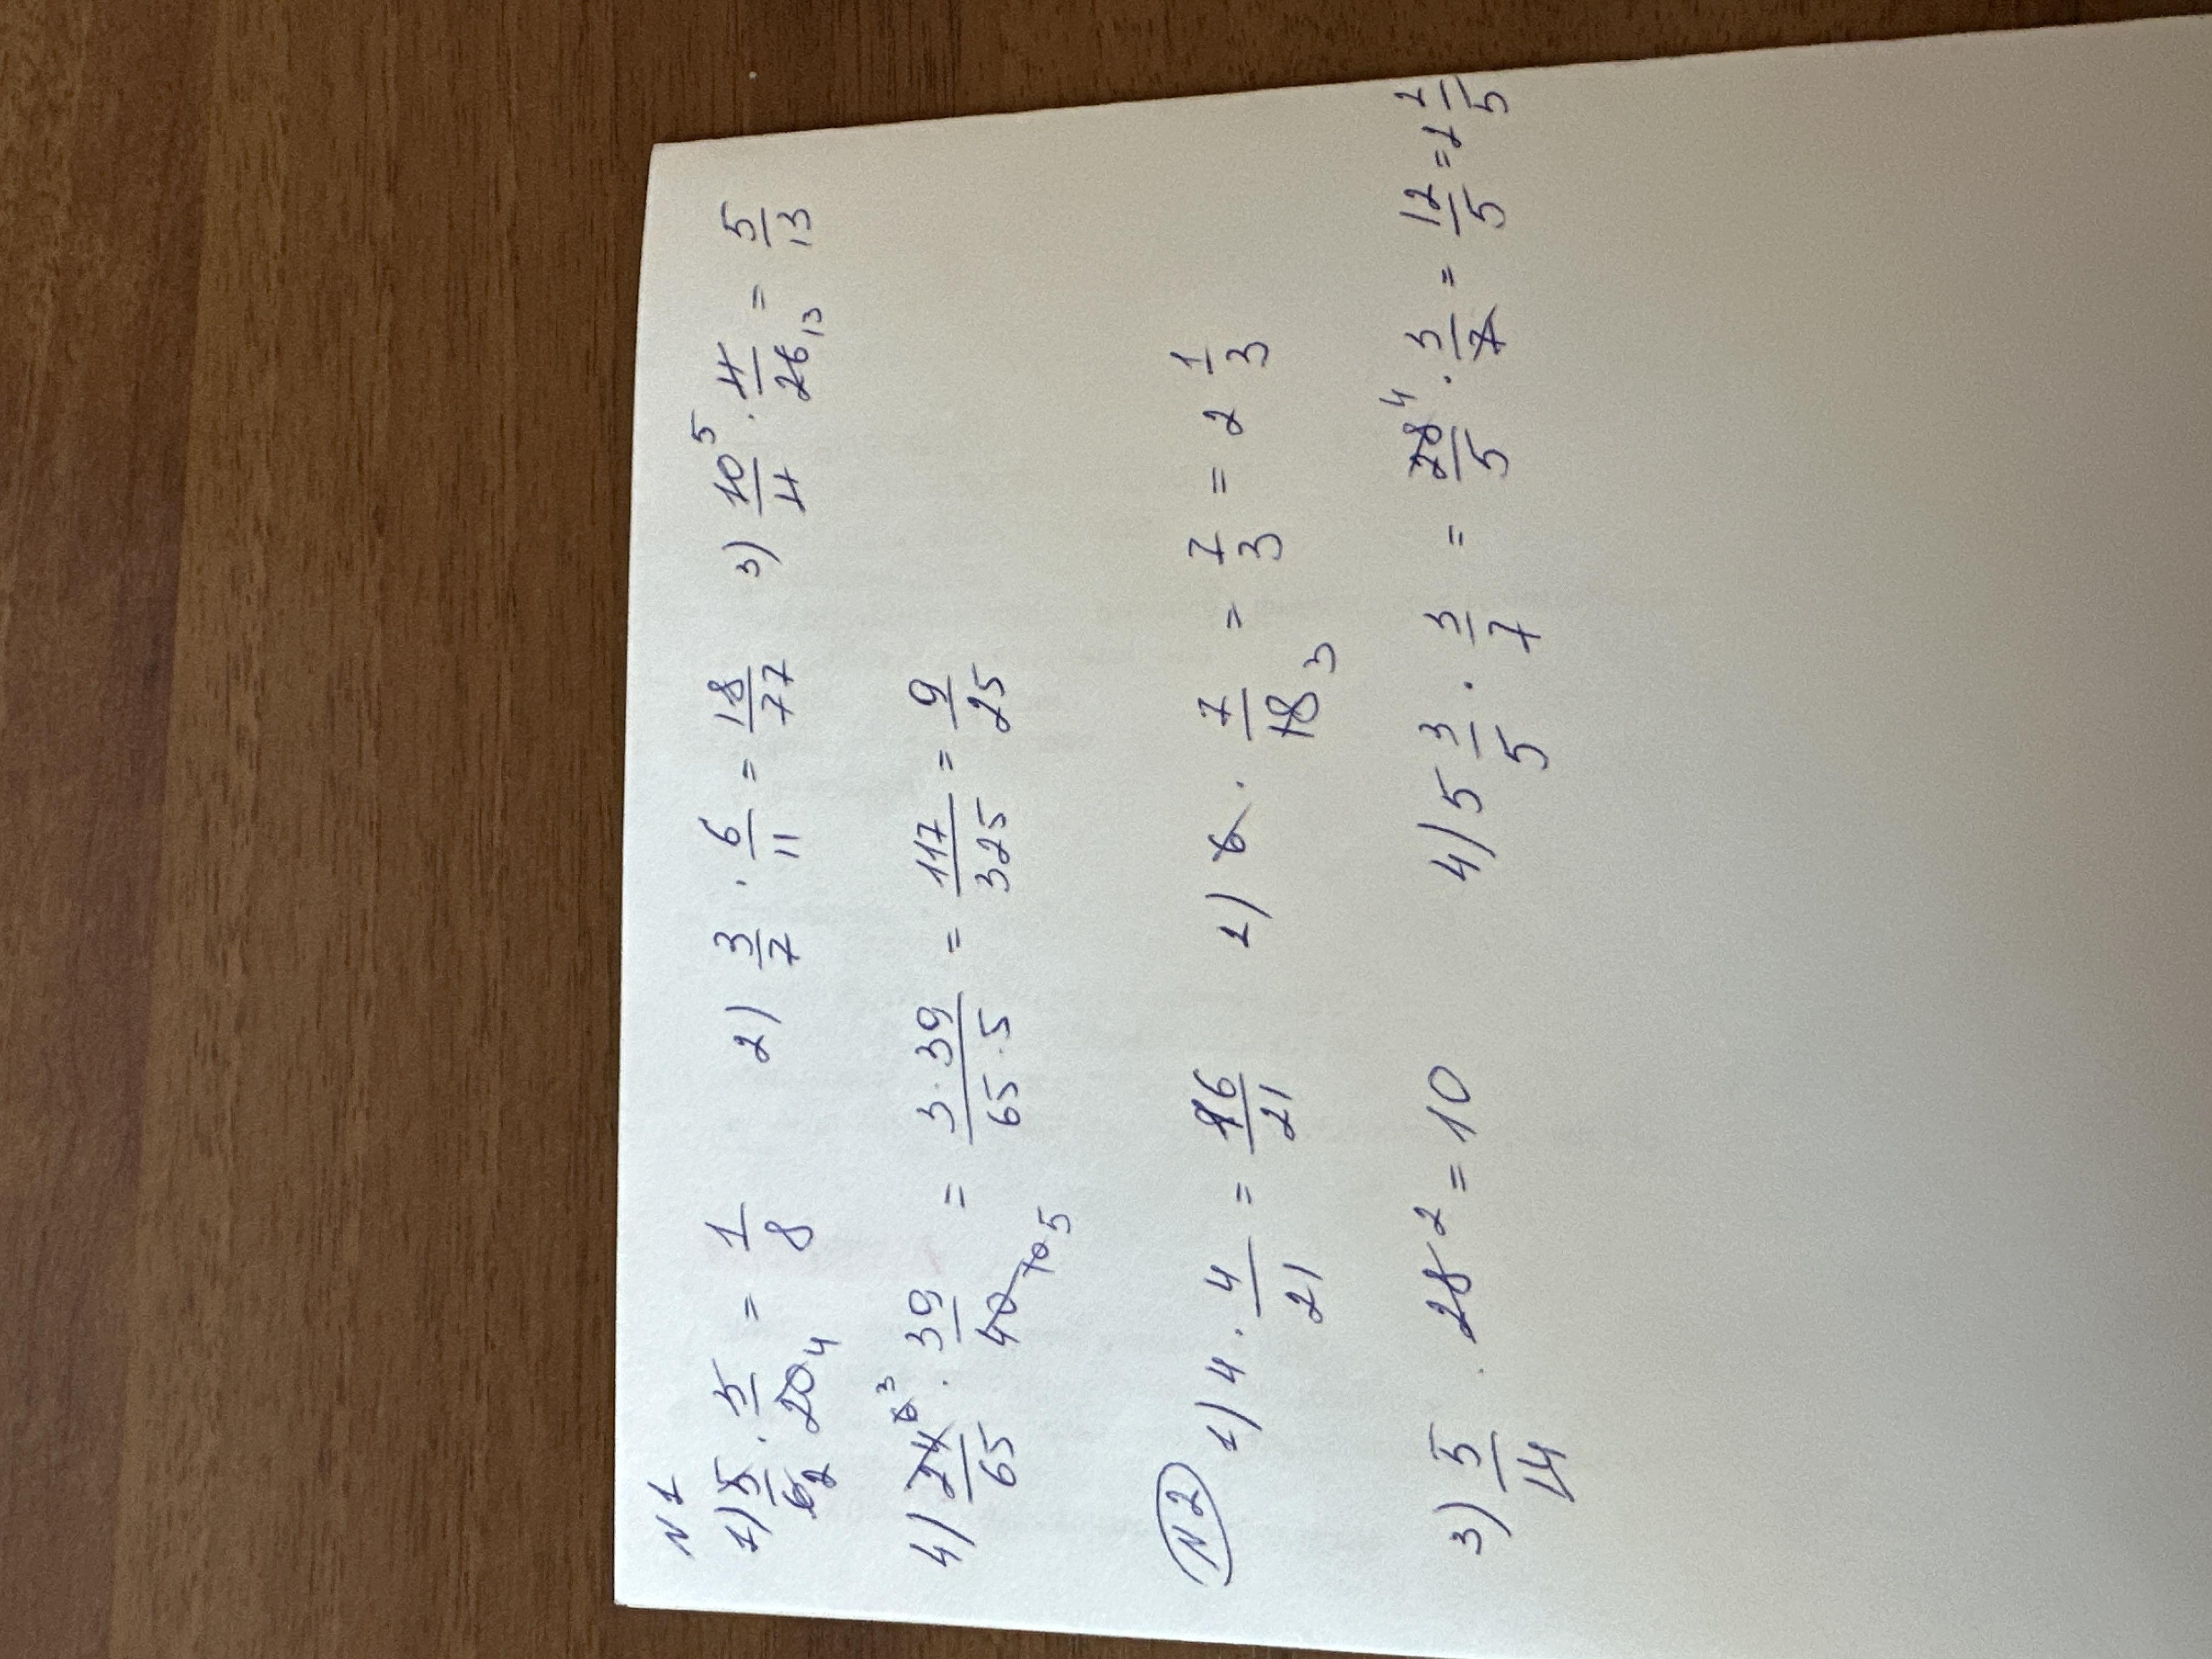 N 1
1) 5/6 2 · 3/20 4 = 1/8 2) 3/7 · 6/11 = 18/77 3) 10/4 5 · 4/26 13 = 5/13
4) 24/65 8 3 · 39/40 10 5 = 3·39/65·5 = 117/325 = 9/25
N2 1) 4 · 4/21 = 16/21 2) 6 · 7/18 3 = 7/3 = 2 1/3
3) 5/14 · 28 2 = 10 4) 5 3/5 · 3/7 = 28/5 4 · 3/7 = 12/5 = 2 2/5